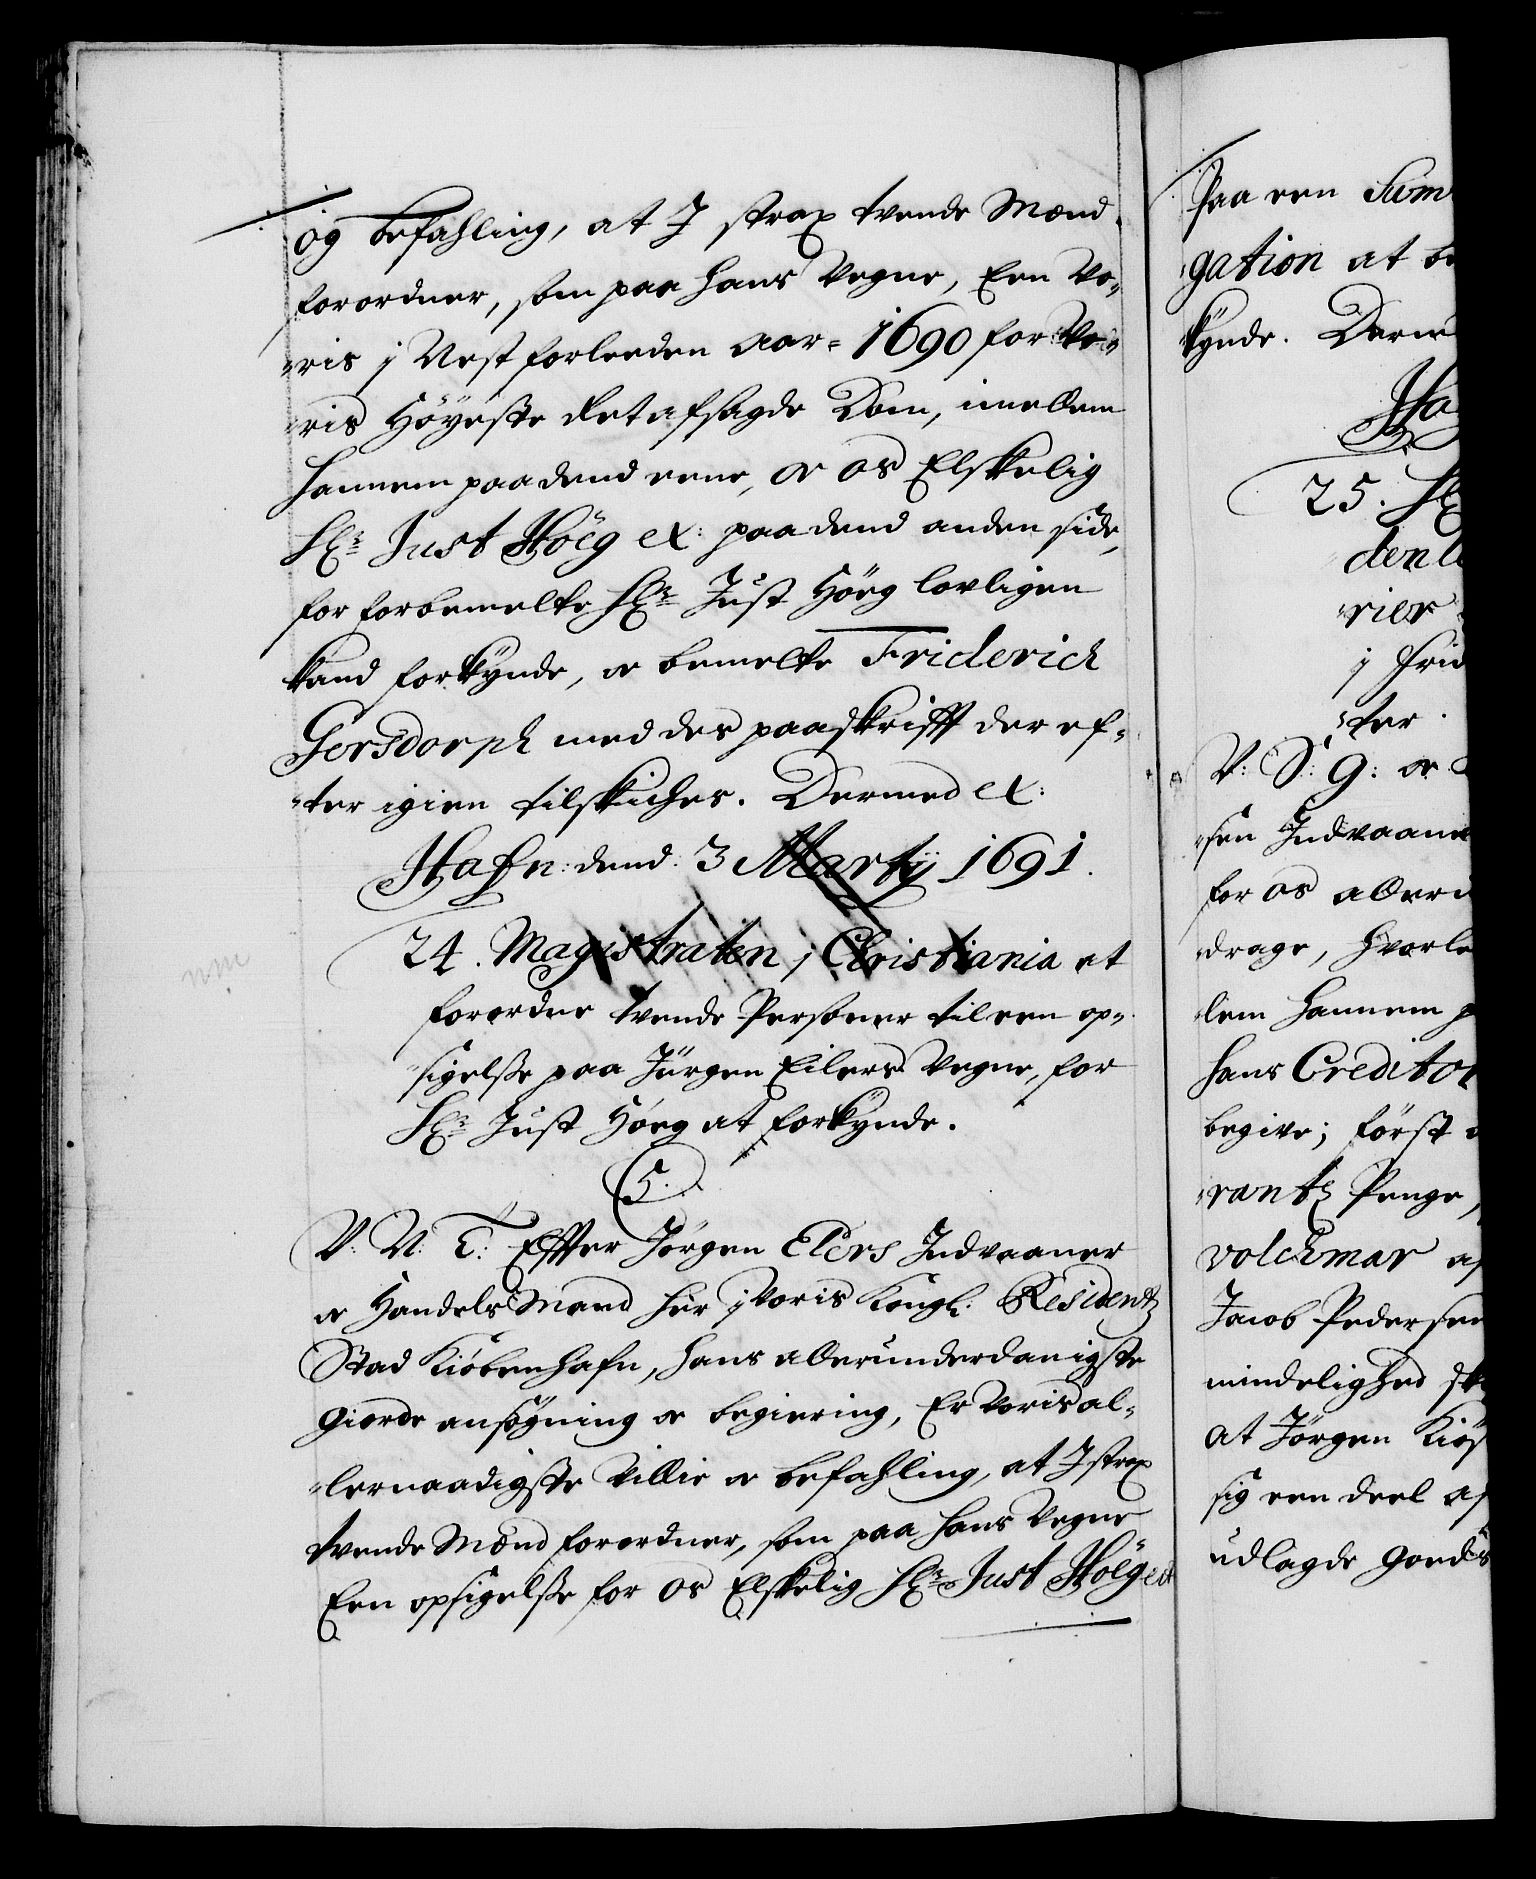 og befahling, at J strax tvende Mænd
forordner, som paa hans Vegne, Een Vo,,
,,ris j Nest forleeden Aar = 1690 for Vo,,
,,ris Höyeste Ret afsagde Dom, imellem
hannem paa dend eene, oc os Elskelig
Hr: Just Höeg etc: paa dend anden side,
for forbemelte Hr: Just Höeg lovligen
kand forkÿnde, oc bemelte Friderich
Gersdorph med des paaskrifft der ef,,
,,ter igien tilskiches. Dermed etc:
Hafn: dend: 3 Martij 1691.
24. Magistraten j Christiania at
forordne tvende Personer til een op,,
,,sigelsse paa Jürgen Eilers Vegne, for
Hr: Just Höeg at forkÿnde.
5.
V: N: T: Effter Jörgen Elers Indvaaner
oc Handels Mand her j Voris Kongl: Residentz
Stad Kiöbenhafn, hans allerunderdanigste
giorde ansögning oc begiering, Er Voris al,,
,,lernaadigste Villie oc befahling, at J strax
tvende Mænd forordner, som paa hans Vegne
Een opsigelsse for os Elskelig Hr: Just Höeg etc
paa een Sum
,,gation at be
kÿnde. Derme
Ha
25. Hr
den
,,rier
j Frid
,,ter.
V: S: G: oc
,,sen Indvaane
for os alleru
,,drage, hvorle
,,lem hannem p
hans Creditor
begive; först
,,rantz Penge,
Volchmar af
Jacob Pedersen
mindelighed sk
at Jörgen Kiös
sig een deel af
udlagde goeds